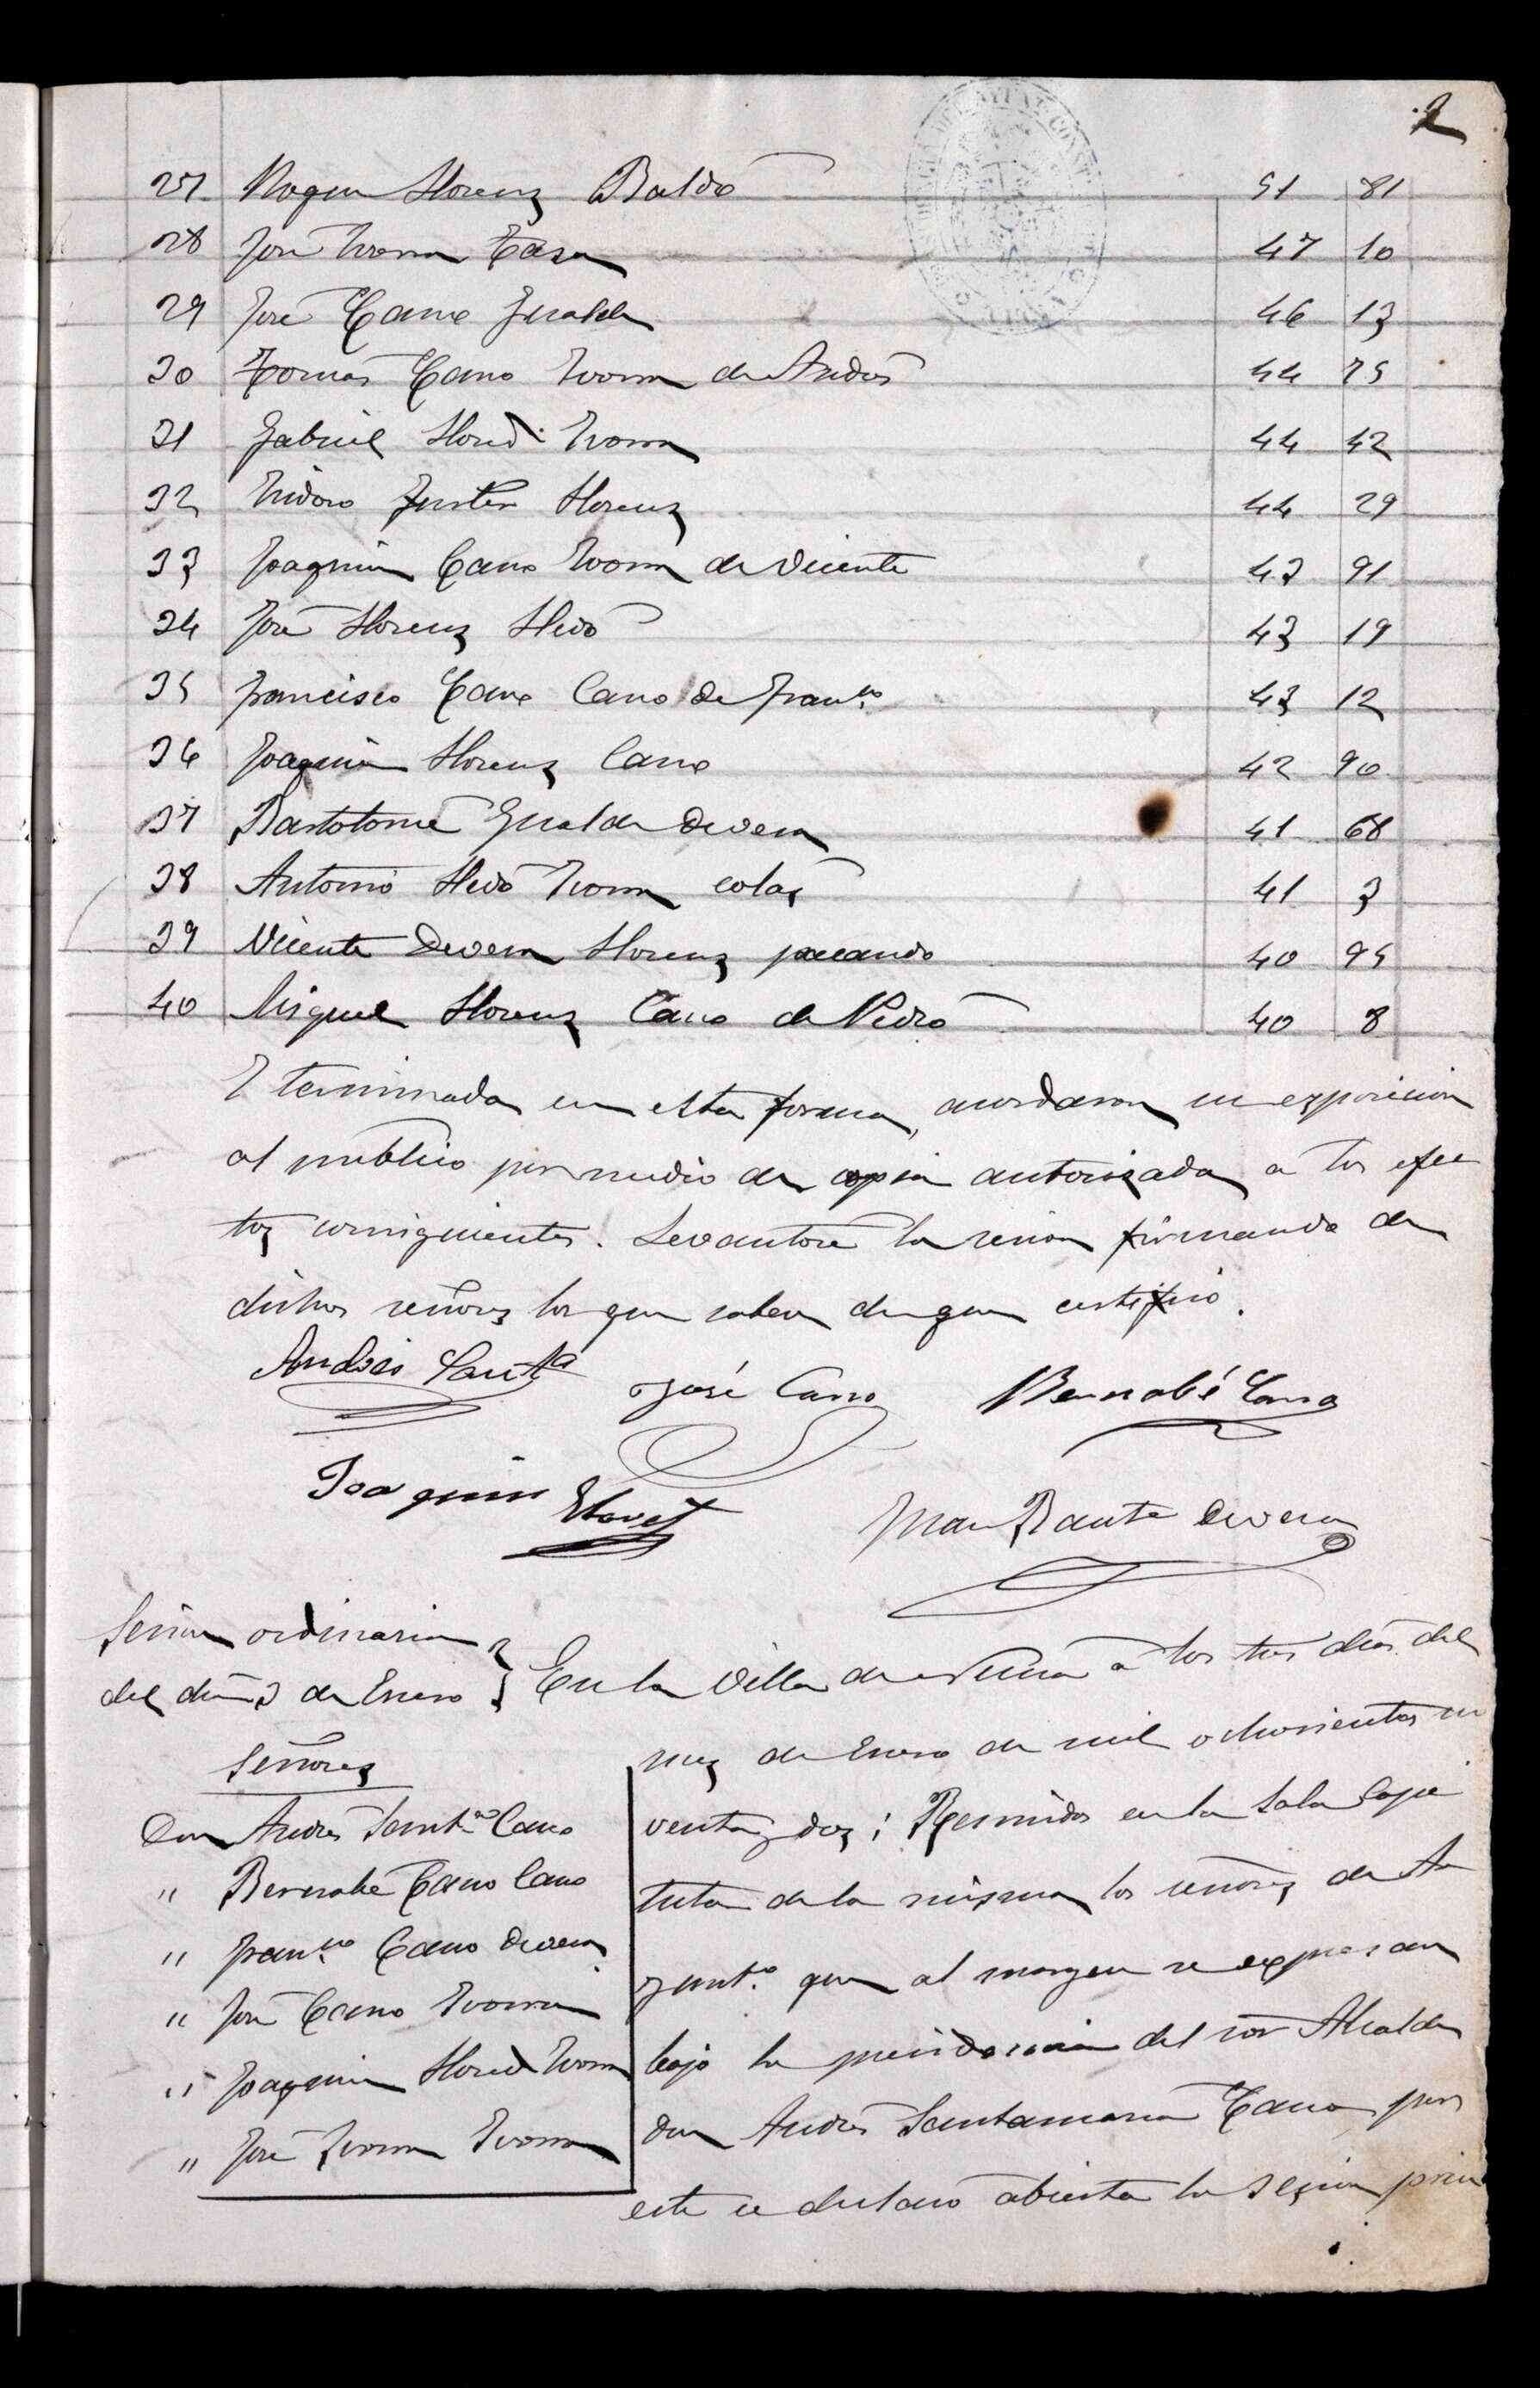 2
27 Roque Llorens Baldó 51 81
28 José Ivorra Casa 47 10
29 José Cano Giralda 46 13
30 Tomás Cano Ivorra de Andrés 44 75
31 Gabriel Lloret Ivorra 44 42
32 Isidoro Fuster Llorens 44 29
33 Joaquin Cano Ivorra de Vicente 43 91
34 José Llorens Lledó 43 19
35 Francisco Cano Cano de Fran.co 43 12
36 Joaquin Llorens Cano 42 90
37 Bartolomé Giralda Devesa 41 68
38 Antonio Lledó Ivorra colas 41 3
39 Vicente Devesa Llorens 40 95
40 Miguel Llorens Cano de Pedro 40 8
Y terminada en esta forma, acordaron su exposicion
al publico por medio de copia autorizada a los efec
tos consiguientes. Levantose la sesion firmando de
dichos señores los que saben de que certifico.
Andrés Sant.a José Cano Bernabé Cano
Joaquin Lloret Juan Bauta Devesa
Sesion ordinaria
del dia 3 de Enero
En la Villa de a los tres dias del
mes de Enero de mil ochocientos no
venta y dos; Reunidos en la Sala Capi
tular de la misma los señores de A
yunt.o que al margen se expresan
bajo la presidencia del sor Alcalde
don Andrés Santamaria Cano, por
este se declaró abierta la sesion prin
Señores
Don Andrés Sant.a Cano
" Bernabé Cano Cano
" Fran.co Cano Devesa
" José Cano Ivorra
" Joaquin Lloret Ivorra
" José Ivorra Ivorra